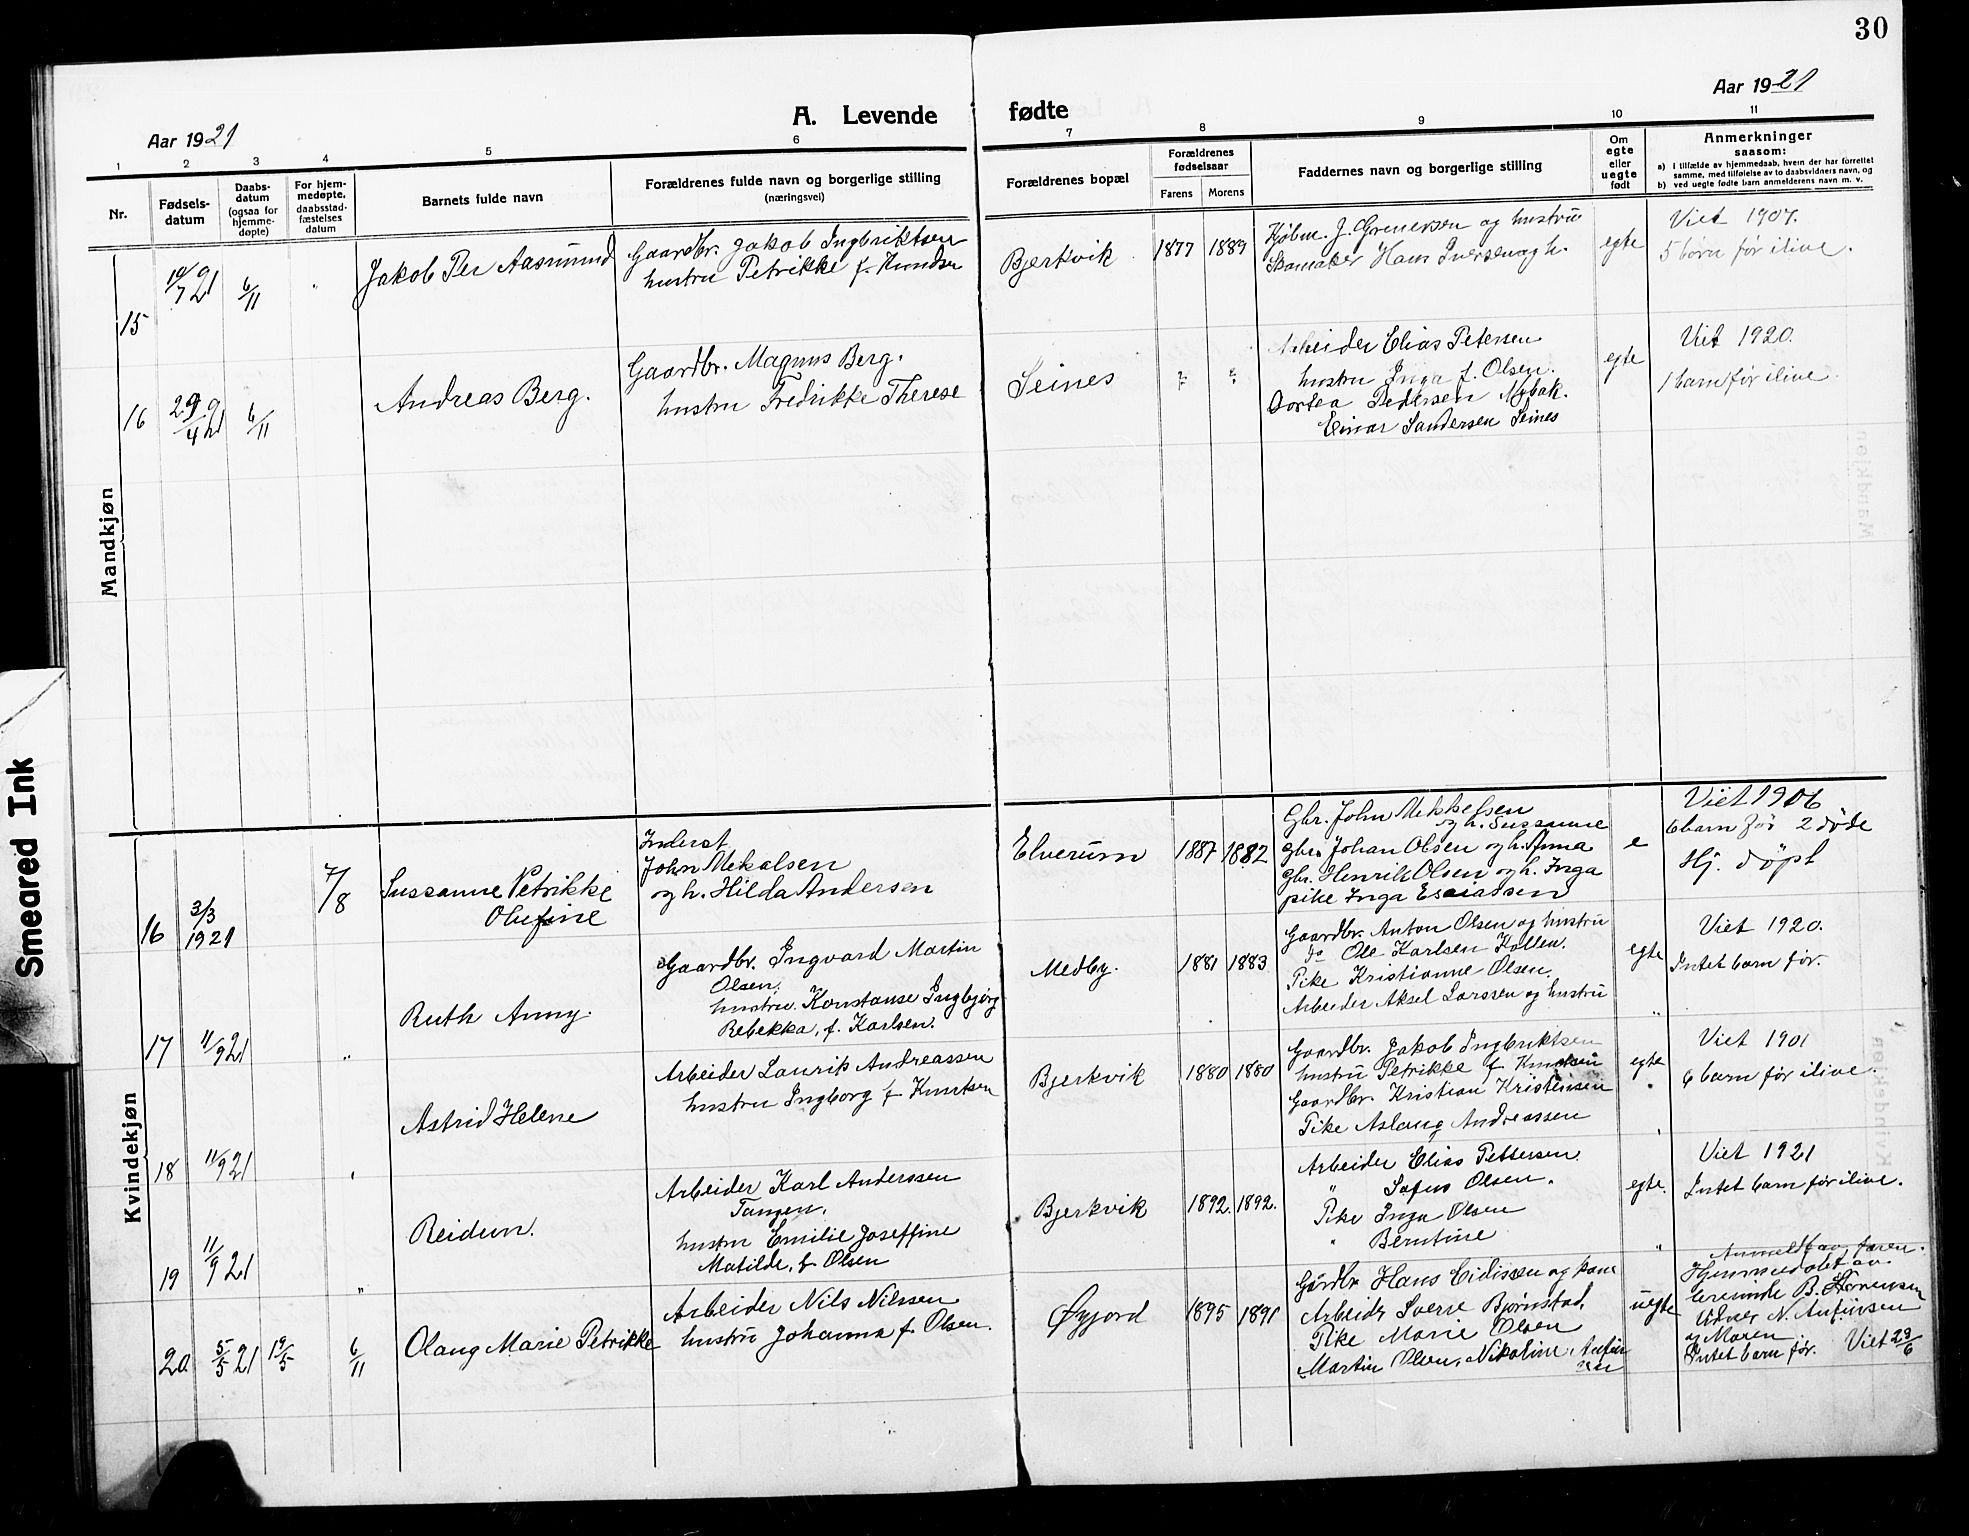 30
Aar 1921
A. Levende fødte
Aar 1921
1 2 3 4 5 6 7 8 9 10 11
Nr.
Fødsels-
datum
Daabs-
datum
(ogsaa for
hjemme-
døpte)
For hjem-
medøpte,
daabsstad-
fæstelses
datum
Barnets fulde navn
Forældrenes fulde navn og borgerlige stilling
(næringsvei)
Forældrenes bopæl
Forældrenes
fødselsaar
Farens Morens
Faddernes navn og borgerlige stilling
Om
egte
eller
uegte
født
Anmerkninger
saasom:
a) i tilfælde av hjemmedaab, hvem der har forrettet
samme, med tilføielse av to daabsvidners navn, og
b) ved uegte fødte barn anmelderens navn m. v.
Mandkjøn
15
19/7 21
6/11
Jakob Per Aasmund
Gaardbr. Jakob Ingbriktsen
hustru Petrikke f. Knudsen
Bjerkvik
1877 1889
Kjøbm. J. Grenersen og hustru
Skomaker Hans Iversen og h.
egte
Viet 1907.
5 børn før ilive.
16
29/4 21
6/11
Andreas Berg.
Gaardbr. Magnus Berg.
hustru Fredrikke Therese
Seines
? ?
Arbeider Elias Petersen
hustru Inga f. Olsen.
Dortea Pedersen Nybak.
Einar Sandersen Seines
egte
Viet 1920.
1 barn før ilive.
Kvindekjøn
16
3/3
1921
7/8
Sussanne Petrikke
Olufine
Inderst
John Mekalsen
og h. Hilda Andersen
Elverum
1887 1882
Gbr. John Mekkelsen
og h. Sussanne
Gbr. Johan Olsen og h. Anna
Gbr. Henrik Olsen og h. Inga
pike Inga Esaiassen
e
Viet 1906
6 barn før 2 døde
Hj. døpt
17
11/9 21
"
Ruth Anny.
Gaardbr. Ingvard Martin
Olsen,
hustru Konstanse Ingbjørg
Rebekka, f. Karlsen.
Medby.
1881 1883
Gaardbr. Anton Olsen og hustru
do Ole Karlsen Kollen.
Pike Kristianne Olsen.
Arbeider Aksel Larssen og hustru
egte
"
Viet 1920.
Intet barn før.
18
11/9 21
"
Astrid Helene
Arbeider Laurits Andreassen
hustru Ingborg f Knutsen
Bjerkvik
1880 1880
Gaardbr. Jakob Ingbriktsen
hustru Petrikke f Knudsen
Gaardbr. Kristian Kristensen
Pike Aslaug Andreassen
egte
"
Viet 1901
6 barn før ilive.
19
11/9 21
"
Reidun.
Arbeider Karl Anderssen
Tangen,
hustru Emilie Joseffine
Matilde, f Olsen
Bjerkvik
1892. 1892.
Arbeider Elias Pettersen
" Sofus Olsen.
Pike Inga Olsen
" Berntine
egte.
"
Viet 1921
Intet barn før ilive.
20
5/5 21
19/5
6/11
Olaug Marie Petrikke
Arbeider Nils Nilssen
hustru Johanna f. Olsen.
Øyjord
1895 1891
Gårdbr. Hans Eidissen og kone
Arbeider Sverre Bjørnstad,
Pike Marie Olsen
Martin Olsen, Nikoline Anfin
sen
uegte
Anmeldt av faren.
Hjemmedøbt av
Berninde B. Sørensen
Vidner N. Anfinsen
og Moren
Intet barn før. Viet 29/6
Smeared Ink